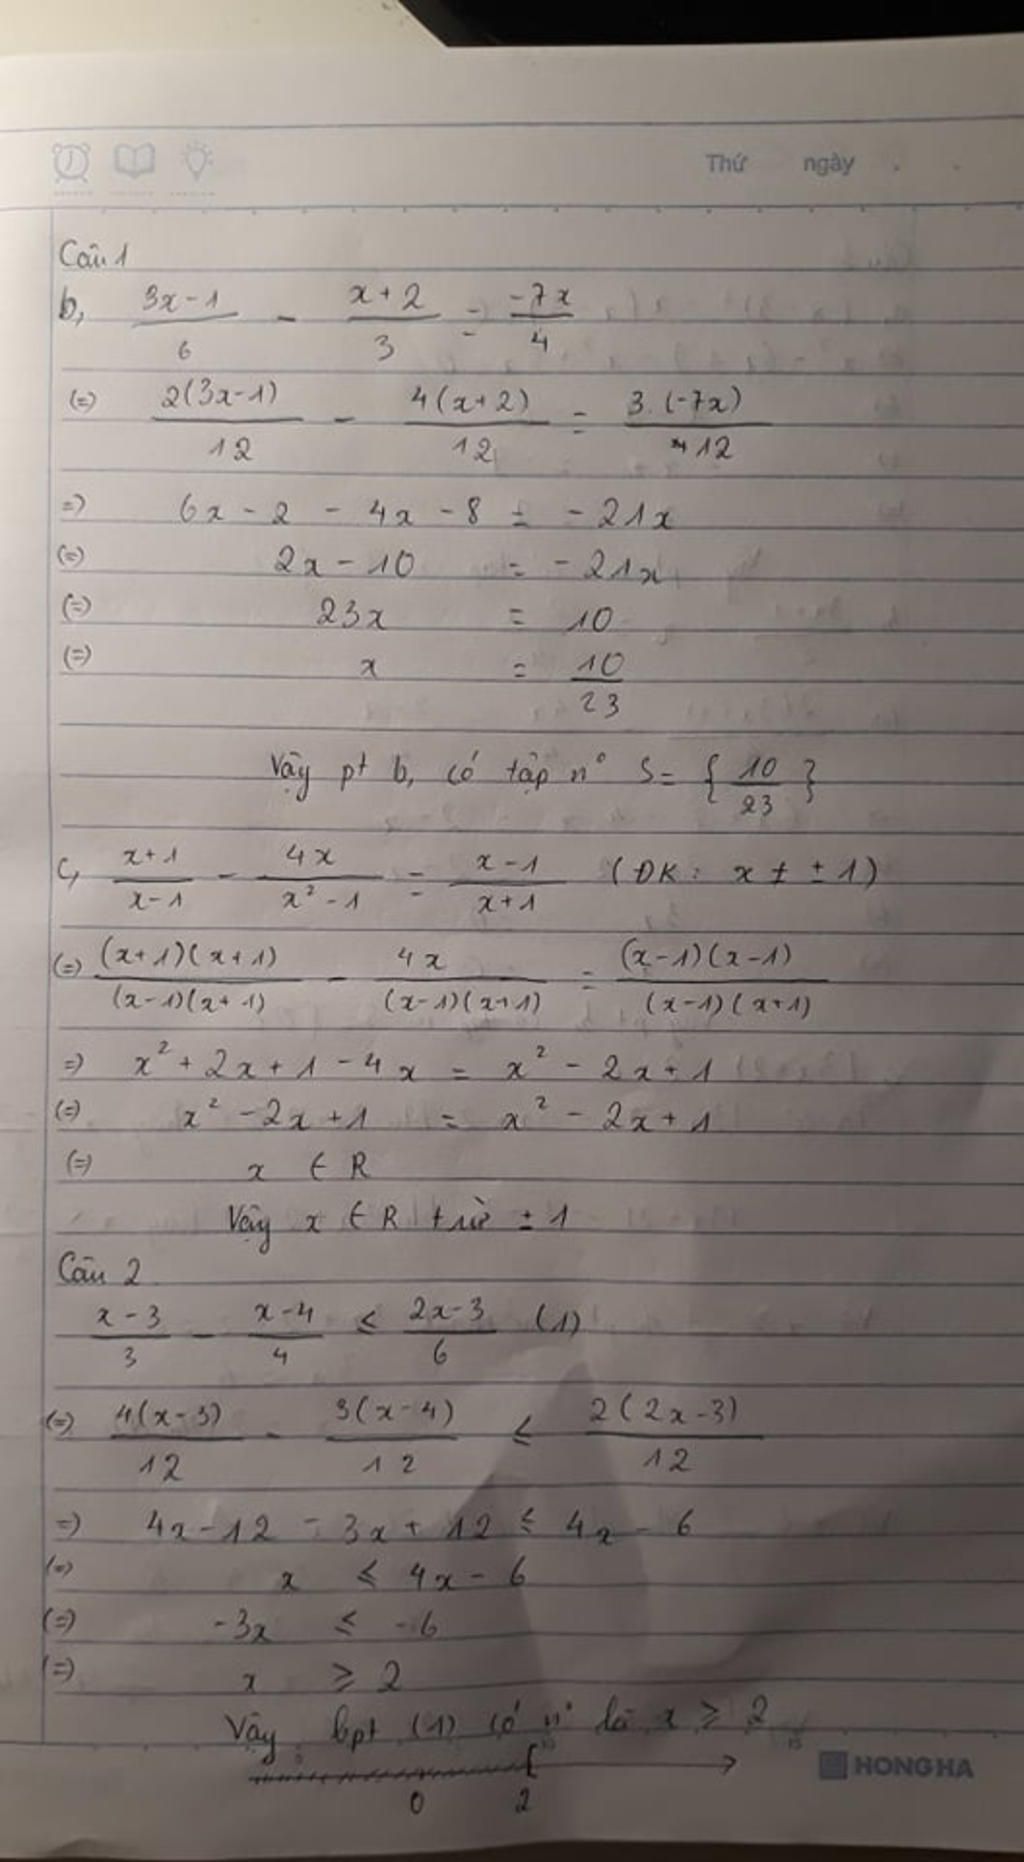 Thứ ngày . .
Câu 1
b, (3x-1)/6 - (x+2)/3 = (-7x)/4
(=) 2(3x-1)/12 - 4(x+2)/12 = 3.(-7x)/12
=) 6x - 2 - 4x - 8 = -21x
(=) 2x - 10 = -21x
(=) 23x = 10
(=) x = 10/23
Vậy pt b, có tập n° S = {10/23}
c, (x+1)/(x-1) - 4x/(x²-1) = (x-1)/(x+1) (ĐK: x ≠ ±1)
(=) (x+1)(x+1)/(x-1)(x+1) - 4x/(x-1)(x+1) = (x-1)(x-1)/(x-1)(x+1)
=) x² + 2x + 1 - 4x = x² - 2x + 1
(=) x² - 2x + 1 = x² - 2x + 1
(=) x ∈ R
Vậy x ∈ R trừ ±1
Câu 2
(x-3)/3 - (x-4)/4 ≤ (2x-3)/6 (1)
(=) 4(x-3)/12 - 3(x-4)/12 ≤ 2(2x-3)/12
=) 4x - 12 - 3x + 12 ≤ 4x - 6
(=) x ≤ 4x - 6
(=) -3x ≤ -6
(=) x ≥ 2
Vậy bpt (1) có n° là x ≥ 2
0 2
HONG HA